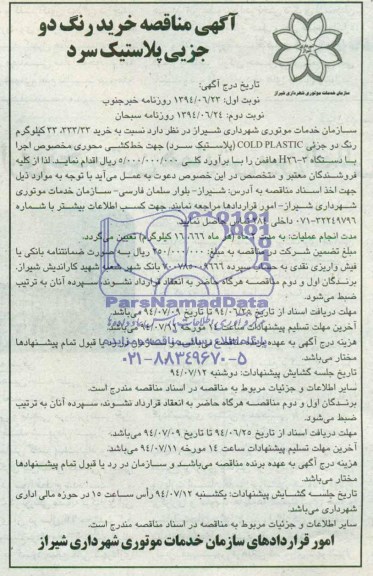 آگهی مناقصه خرید رنگ دو
جزیی پلاستیک سرد
سازمان خدمات موتوری شهرداری شیراز
تاریخ درج آگهی:
نوبت اول: ۱۳۹۴/۰۶/۲۳ روزنامه خبرجنوب
نوبت دوم: ۱۳۹۴/۰۶/۲۴ روزنامه سبحان
سازمان خدمات موتوری شهرداری شیراز در نظر دارد نسبت به خرید ۳۳۳/۳۳، ۳۳ کیلوگرم
رنگ دو جزئی COLD PLASTIC (پلاستیک سرد) جهت خط‌کشی محوری مخصوص اجرا
با دستگاه H۲۶-۳ هافمن را با برآورد کلی ۵/۰۰۰/۰۰۰/۰۰۰ ریال اقدام نماید. لذا از کلیه
فروشندگان معتبر و متخصص در این خصوص دعوت به عمل می‌آید با توجه به موارد ذیل
جهت اخذ اسناد مناقصه به آدرس: شیراز- بلوار سلمان فارسی- سازمان خدمات موتوری
شهرداری شیراز- امور قراردادها مراجعه نمایند. جهت کسب اطلاعات بیشتر با شماره
۰۷۱-۳۲۲۴۹۷۹۶ داخلی ۲۸۴ تماس حاصل نمایید.
مدت انجام عملیات: به مدت ۲ ماه (هر ماه ۱۶.۶۶۶ کیلوگرم) تعیین می‌گردد.
مبلغ تضمین شرکت در مناقصه به مبلغ: ۲۵۰/۰۰۰/۰۰۰ ریال به صورت ضمانتنامه بانکی یا
فیش واریزی نقدی به حساب سپرده بانک شهر شعبه شهید کاراندیش شیراز.
برندگان اول و دوم مناقصه هرگاه حاضر به انعقاد قرارداد نشوند، سپرده آنان به ترتیب
ضبط می‌شود.
مهلت دریافت اسناد از تاریخ ۹۴/۰۶/۲۵ تا تاریخ ۹۴/۰۷/۰۹ می‌باشد.
آخرین مهلت تسلیم پیشنهادات ساعت ۱۴ مورخه ۹۴/۰۷/۱۱ می‌باشد.
هزینه درج آگهی به عهده برنده مناقصه می‌باشد و سازمان در رد یا قبول تمام پیشنهادها
مختار می‌باشد.
تاریخ جلسه گشایش پیشنهادات: دوشنبه ۹۴/۰۷/۱۲
سایر اطلاعات و جزئیات مربوط به مناقصه در اسناد مناقصه مندرج است.
برندگان اول و دوم مناقصه هرگاه حاضر به انعقاد قرارداد نشوند، سپرده آنان به ترتیب
ضبط می‌شود.
مهلت دریافت اسناد از تاریخ ۹۴/۰۶/۲۵ تا تاریخ ۹۴/۰۷/۰۹ می‌باشد.
آخرین مهلت تسلیم پیشنهادات ساعت ۱۴ مورخه ۹۴/۰۷/۱۱ می‌باشد.
هزینه درج آگهی به عهده برنده مناقصه می‌باشد و سازمان در رد یا قبول تمام پیشنهادها
مختار می‌باشد.
تاریخ جلسه گشایش پیشنهادات: یکشنبه ۹۴/۰۷/۱۲ رأس ساعت ۱۵ در حوزه مالی اداری
شهرداری می‌باشد.
سایر اطلاعات و جزئیات مربوط به مناقصه در اسناد مناقصه مندرج است.
امور قراردادهای سازمان خدمات موتوری شهرداری شیراز
ParsNamadData
۰۲۱-۸۸۳۴۹۶۷۰-۵